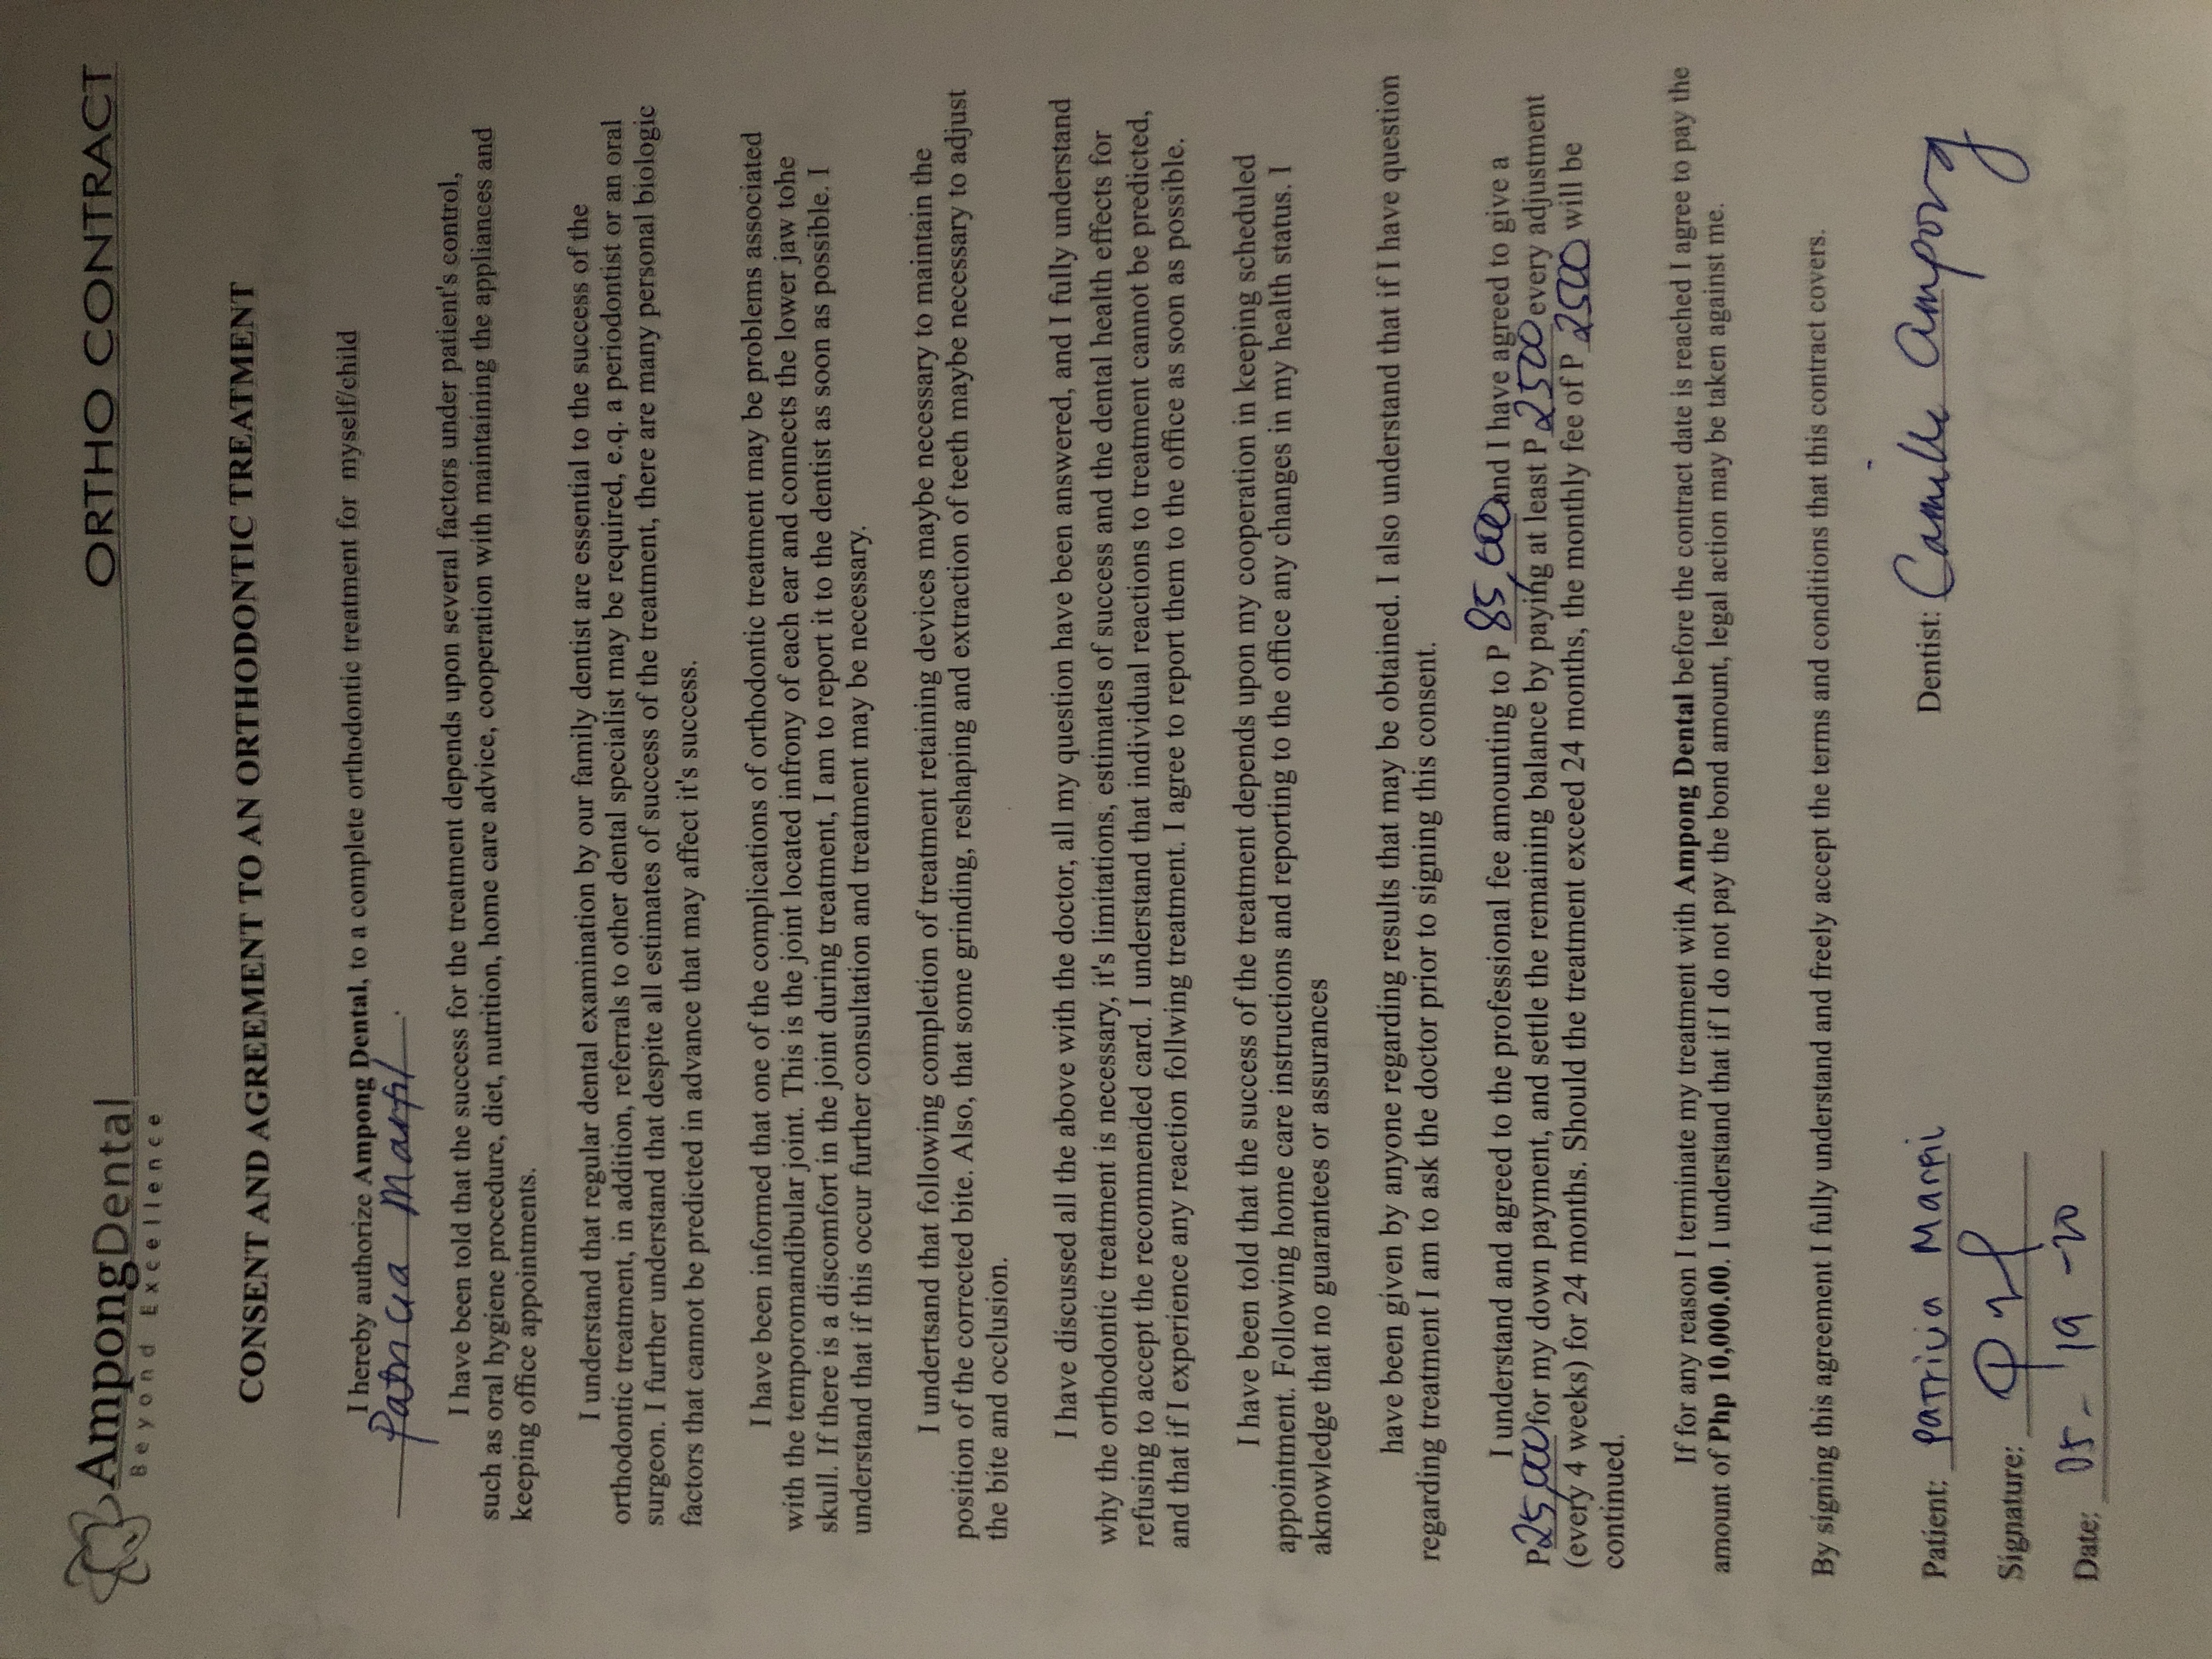 AmpongDental
Beyond Excellence
ORTHO CONTRACT
CONSENT AND AGREEMENT TO AN ORTHODONTIC TREATMENT
I hereby authorize Ampong Dental, to a complete orthodontic treatment for myself/child
Patricia Marfil.
I have been told that the success for the treatment depends upon several factors under patient's control,
such as oral hygiene procedure, diet, nutrition, home care advice, cooperation with maintaining the appliances and
keeping office appointments.
I understand that regular dental examination by our family dentist are essential to the success of the
orthodontic treatment, in addition, referrals to other dental specialist may be required, e.q. a periodontist or an oral
surgeon. I further understand that despite all estimates of success of the treatment, there are many personal biologic
factors that cannot be predicted in advance that may affect it's success.
I have been informed that one of the complications of orthodontic treatment may be problems associated
with the temporomandibular joint. This is the joint located infrony of each ear and connects the lower jaw tohe
skull. If there is a discomfort in the joint during treatment, I am to report it to the dentist as soon as possible. I
understand that if this occur further consultation and treatment may be necessary.
I undertsand that following completion of treatment retaining devices maybe necessary to maintain the
position of the corrected bite. Also, that some grinding, reshaping and extraction of teeth maybe necessary to adjust
the bite and occlusion.
I have discussed all the above with the doctor, all my question have been answered, and I fully understand
why the orthodontic treatment is necessary, it's limitations, estimates of success and the dental health effects for
refusing to accept the recommended card. I understand that individual reactions to treatment cannot be predicted,
and that if I experience any reaction follwing treatment. I agree to report them to the office as soon as possible.
I have been told that the success of the treatment depends upon my cooperation in keeping scheduled
appointment. Following home care instructions and reporting to the office any changes in my health status. I
aknowledge that no guarantees or assurances
have been given by anyone regarding results that may be obtained. I also understand that if I have question
regarding treatment I am to ask the doctor prior to signing this consent.
I understand and agreed to the professional fee amounting to P 85,000 and I have agreed to give a
P 25,000 for my down payment, and settle the remaining balance by paying at least P 2500 every adjustment
(every 4 weeks) for 24 months. Should the treatment exceed 24 months, the monthly fee of P 2500 will be
continued.
If for any reason I terminate my treatment with Ampong Dental before the contract date is reached I agree to pay the
amount of Php 10,000.00. I understand that if I do not pay the bond amount, legal action may be taken against me.
By signing this agreement I fully understand and freely accept the terms and conditions that this contract covers.
Patient: Patricia Marfil
Dentist: Camille Ampong
Signature:
Date: 05-19-20